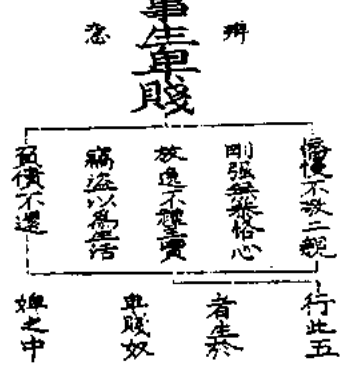 辨意
生卑賤
憍慢不敬二親
剛強無恭恪心
放逸不禮三寶
竊盜以為生活
負債不還
行此五
者生於
卑賤奴
婢之中